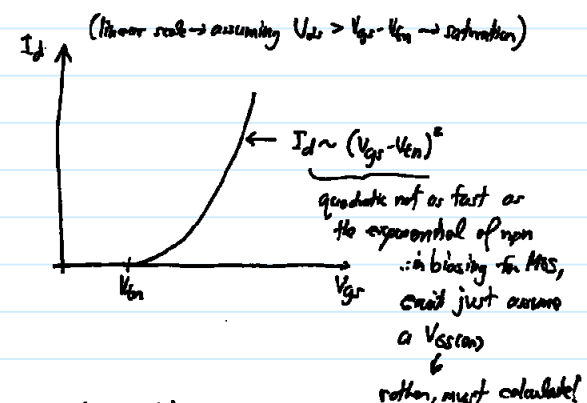 (linear scale → assuming Vds > Vgs - Vtn → saturation)
Id
← Id ~ (Vgs - Vtn)²
quadratic not as fast as
the exponential of npn
∴ in biasing for MOS,
can't just assume
a VGS(on)
↓
rather, must calculate!
Vtn
Vgs